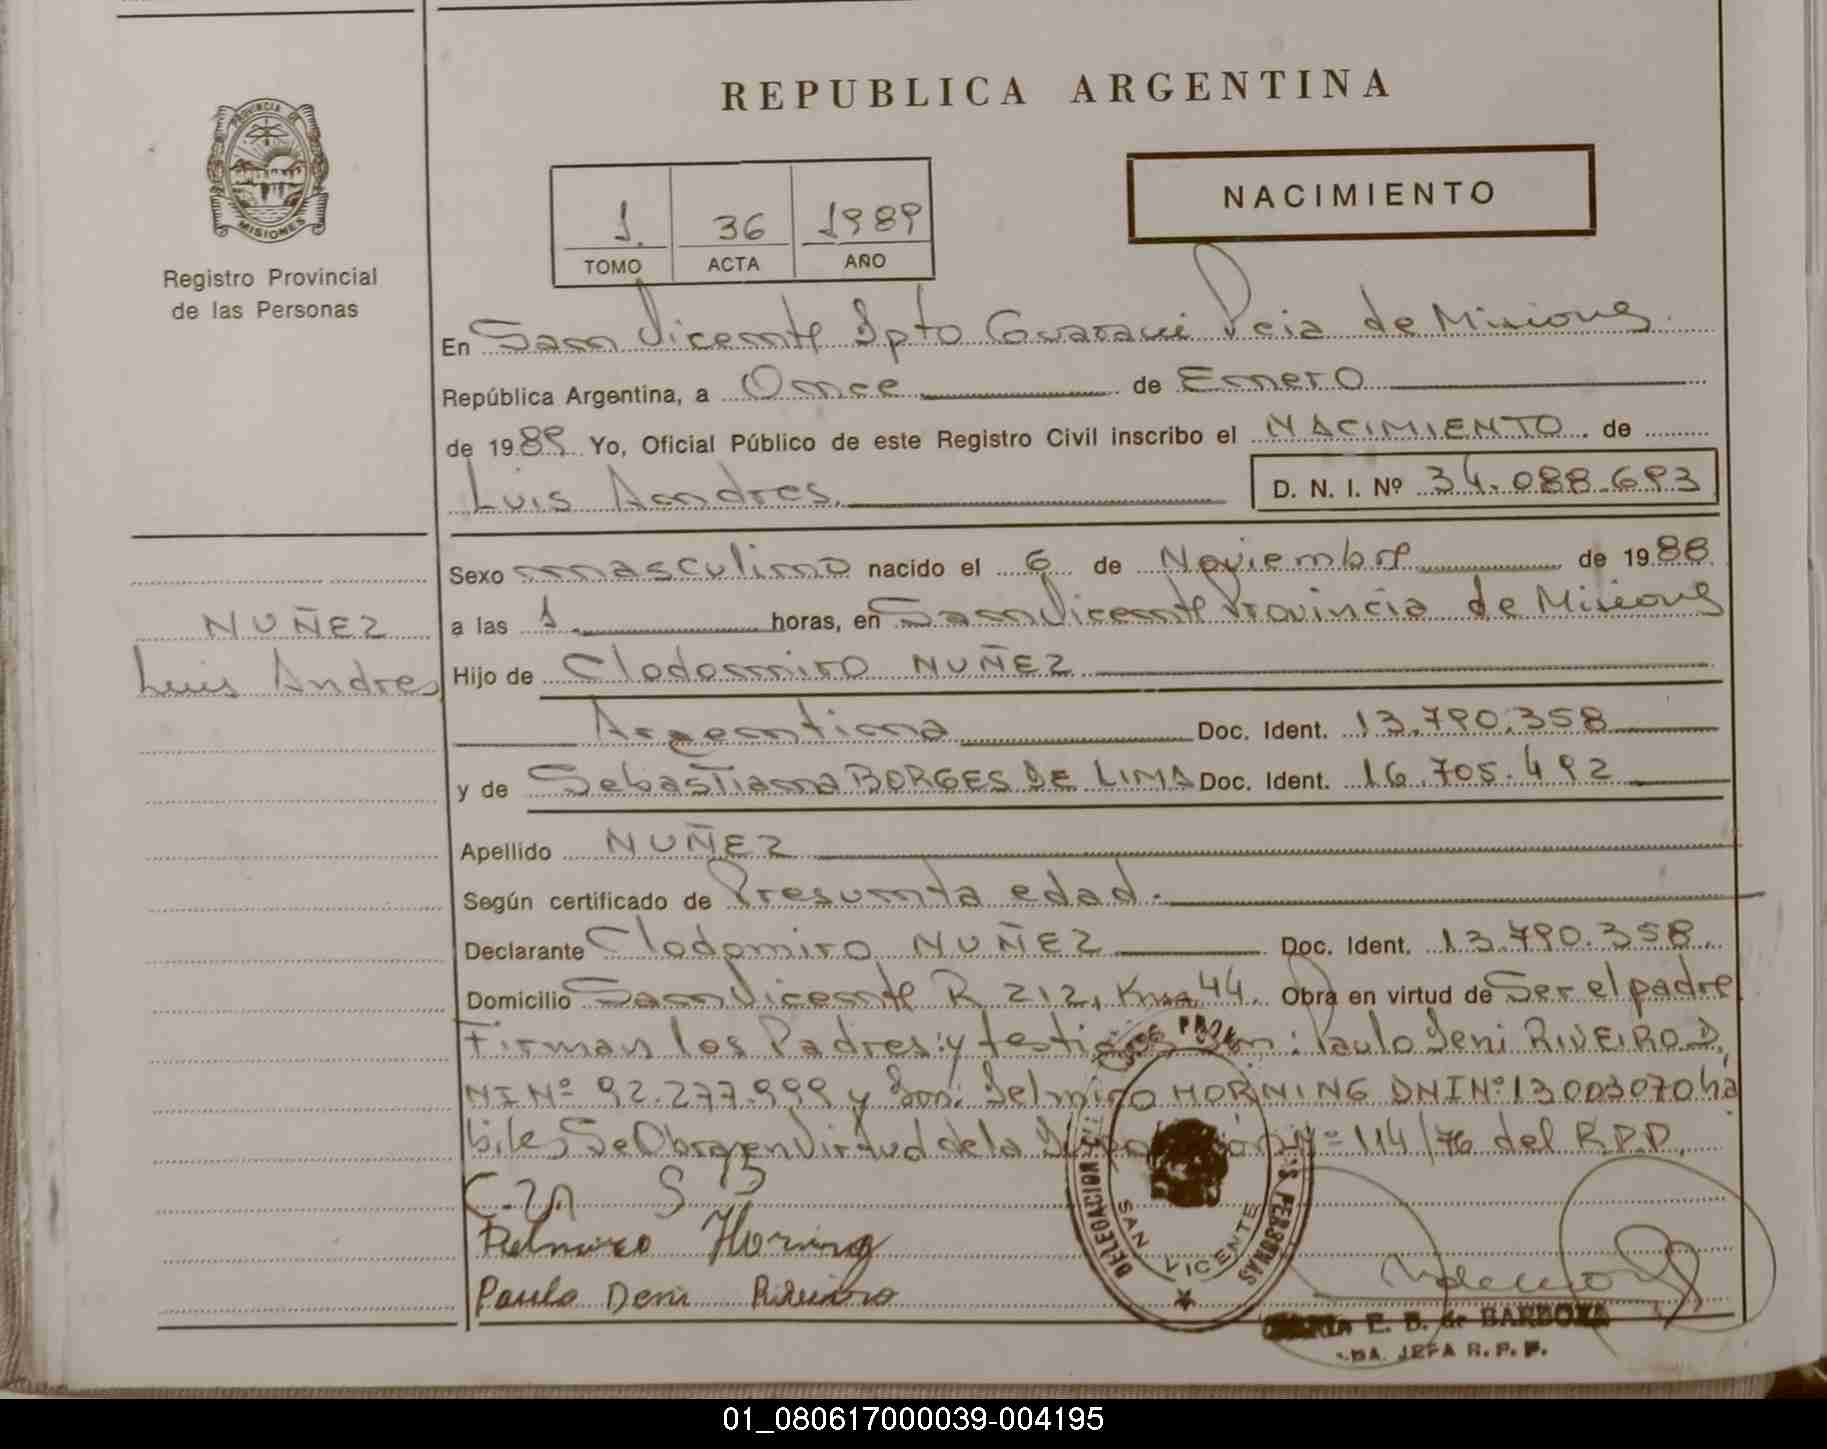 REPUBLICA ARGENTINA
PROVINCIA DE
MISIONES
Registro Provincial
de las Personas
NACIMIENTO
1. 36 1989
TOMO ACTA AÑO
En San Vicente Dpto Guarani Pcia de Misiones
República Argentina, a Once de Enero
de 1989 Yo, Oficial Público de este Registro Civil inscribo el NACIMIENTO de
Luis Andres. D. N. I. Nº 34.088.693
Sexo masculino nacido el 6 de Noviembre de 1988
a las 1 horas, en San Vicente Provincia de Misiones
NUÑEZ
Luis Andres
Hijo de Clodomiro NUÑEZ
Argentina Doc. Ident. 13.790.358
y de Sebastiana BORGES DE LIMA Doc. Ident. 16.705.492
Apellido NUÑEZ
Según certificado de Presunta edad.
Declarante Clodomiro NUÑEZ Doc. Ident. 13.790.358.
Domicilio San Vicente R 212, Km 44. Obra en virtud de Ser el padre
Firman los Padres: y testigos Don: Paulo Deni RIVEIRO D.
NI Nº 92.277.999 y Don: Delmiro HORNING DNI Nº 13003070 há
biles Se Obra en Virtud de la Nº 114/76 del R.P.P.
C.ZN S B
Delmiro Horning
Paulo Deni Ribeiro
DELEGACION
SAN VICENTE
PERSONAS
MARIA E. B. de BARBOZA
JEFA R. P. P.
01_080617000039-004195